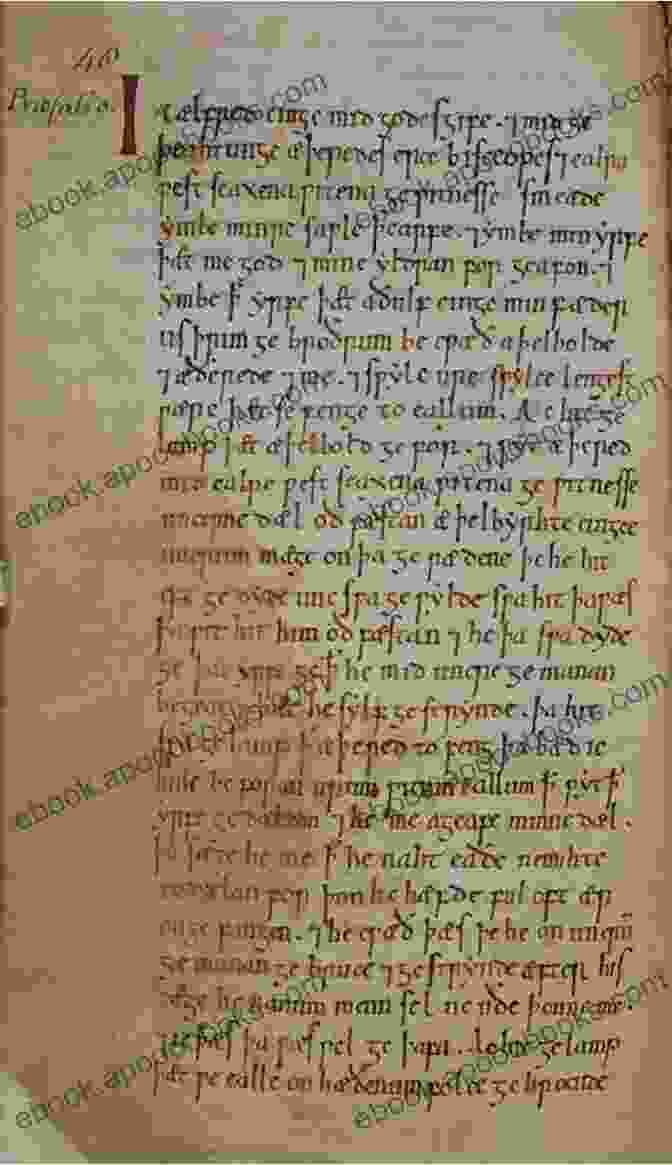 46
Præfatio.
IC ælfred cinge mid godes gife . ⁊ mid ge
þeahtunge æþeredes erce bisceopes ⁊ ealra
ƿest seaxena ƿitena geƿitnesse smeade
ymbe minre saƿle þearfe . ⁊ ymbe min yrfe
þæt me god ⁊ mine yldran for geafon . ⁊
ymbe ꝥ yrfe þæt aðulf cinge min fæder
us þrim ge broðrum be cƿæð aþelbolde
⁊ æðerede ⁊ me . ⁊ sƿylc ure sƿylce lengest
ƿære þæt se fenge to eallum . Ac hit ge
lamp þæt æþelbold ge for . ⁊ ƿyt æþered
mid ealre ƿest seaxena ƿitena ge ƿitnesse
uncerne dæl oð fæstan æþelbyrhte cincge
uncrum mæge on þa ge rædene þe he hit
eft ge dyde unc sƿa ge ƿylde sƿa hit þa ƿæs
þa ƿit hit him oð fæstan ⁊ he þa sƿa dyde
ge þæt yrfe ge ꝥ he mid uncre ge manan
begeat ⁊ þæt he sylf ge strynde . þa hit
sƿa ge lamp þæt æþered to feng þa bæd ic
hine be foran urum ƿitum eallum ꝥ ƿyt ꝥ
yrfe ge dældon ⁊ he me ageafe minne dæl .
þa sæde he me ꝥ he naht eaðe ne mihte
todælan for þon he hæfde ful oft ær
on ge fangen . ⁊ he cƿæð þæs þe he on uncrum
ge manan ge bruce ⁊ ge strynde æfter his
dæge he nanum mam sel ne uðe þonne me .
⁊ ic þæs þa ƿæs ƿel ge þafa . Ac hit ge lamp
þæt ƿe ealle on hæðenum folce ge brocude